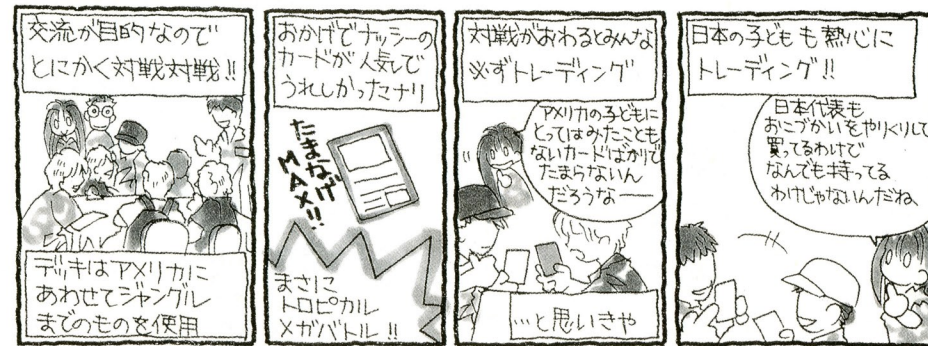 交流が目的なので
とにかく対戦対戦!!
デッキはアメリカに
あわせてジャングル
までのものを使用
おかげでナッシーの
カードが人気で
うれしかったマナリ
たまなげ
MAX!!
まさに
トロピカル
メガバトル!!
対戦がおわるとみんな
必ずトレーディング
アメリカの子どもに
とってはみたことも
ないカードばかりで
たまらないん
だろうなー
…と思いきや
日本の子どもも熱心に
トレーディング!!
日本代表も
おこづかいをやりくりして
買ってるわけで
なんでも持ってる
わけじゃないんだね